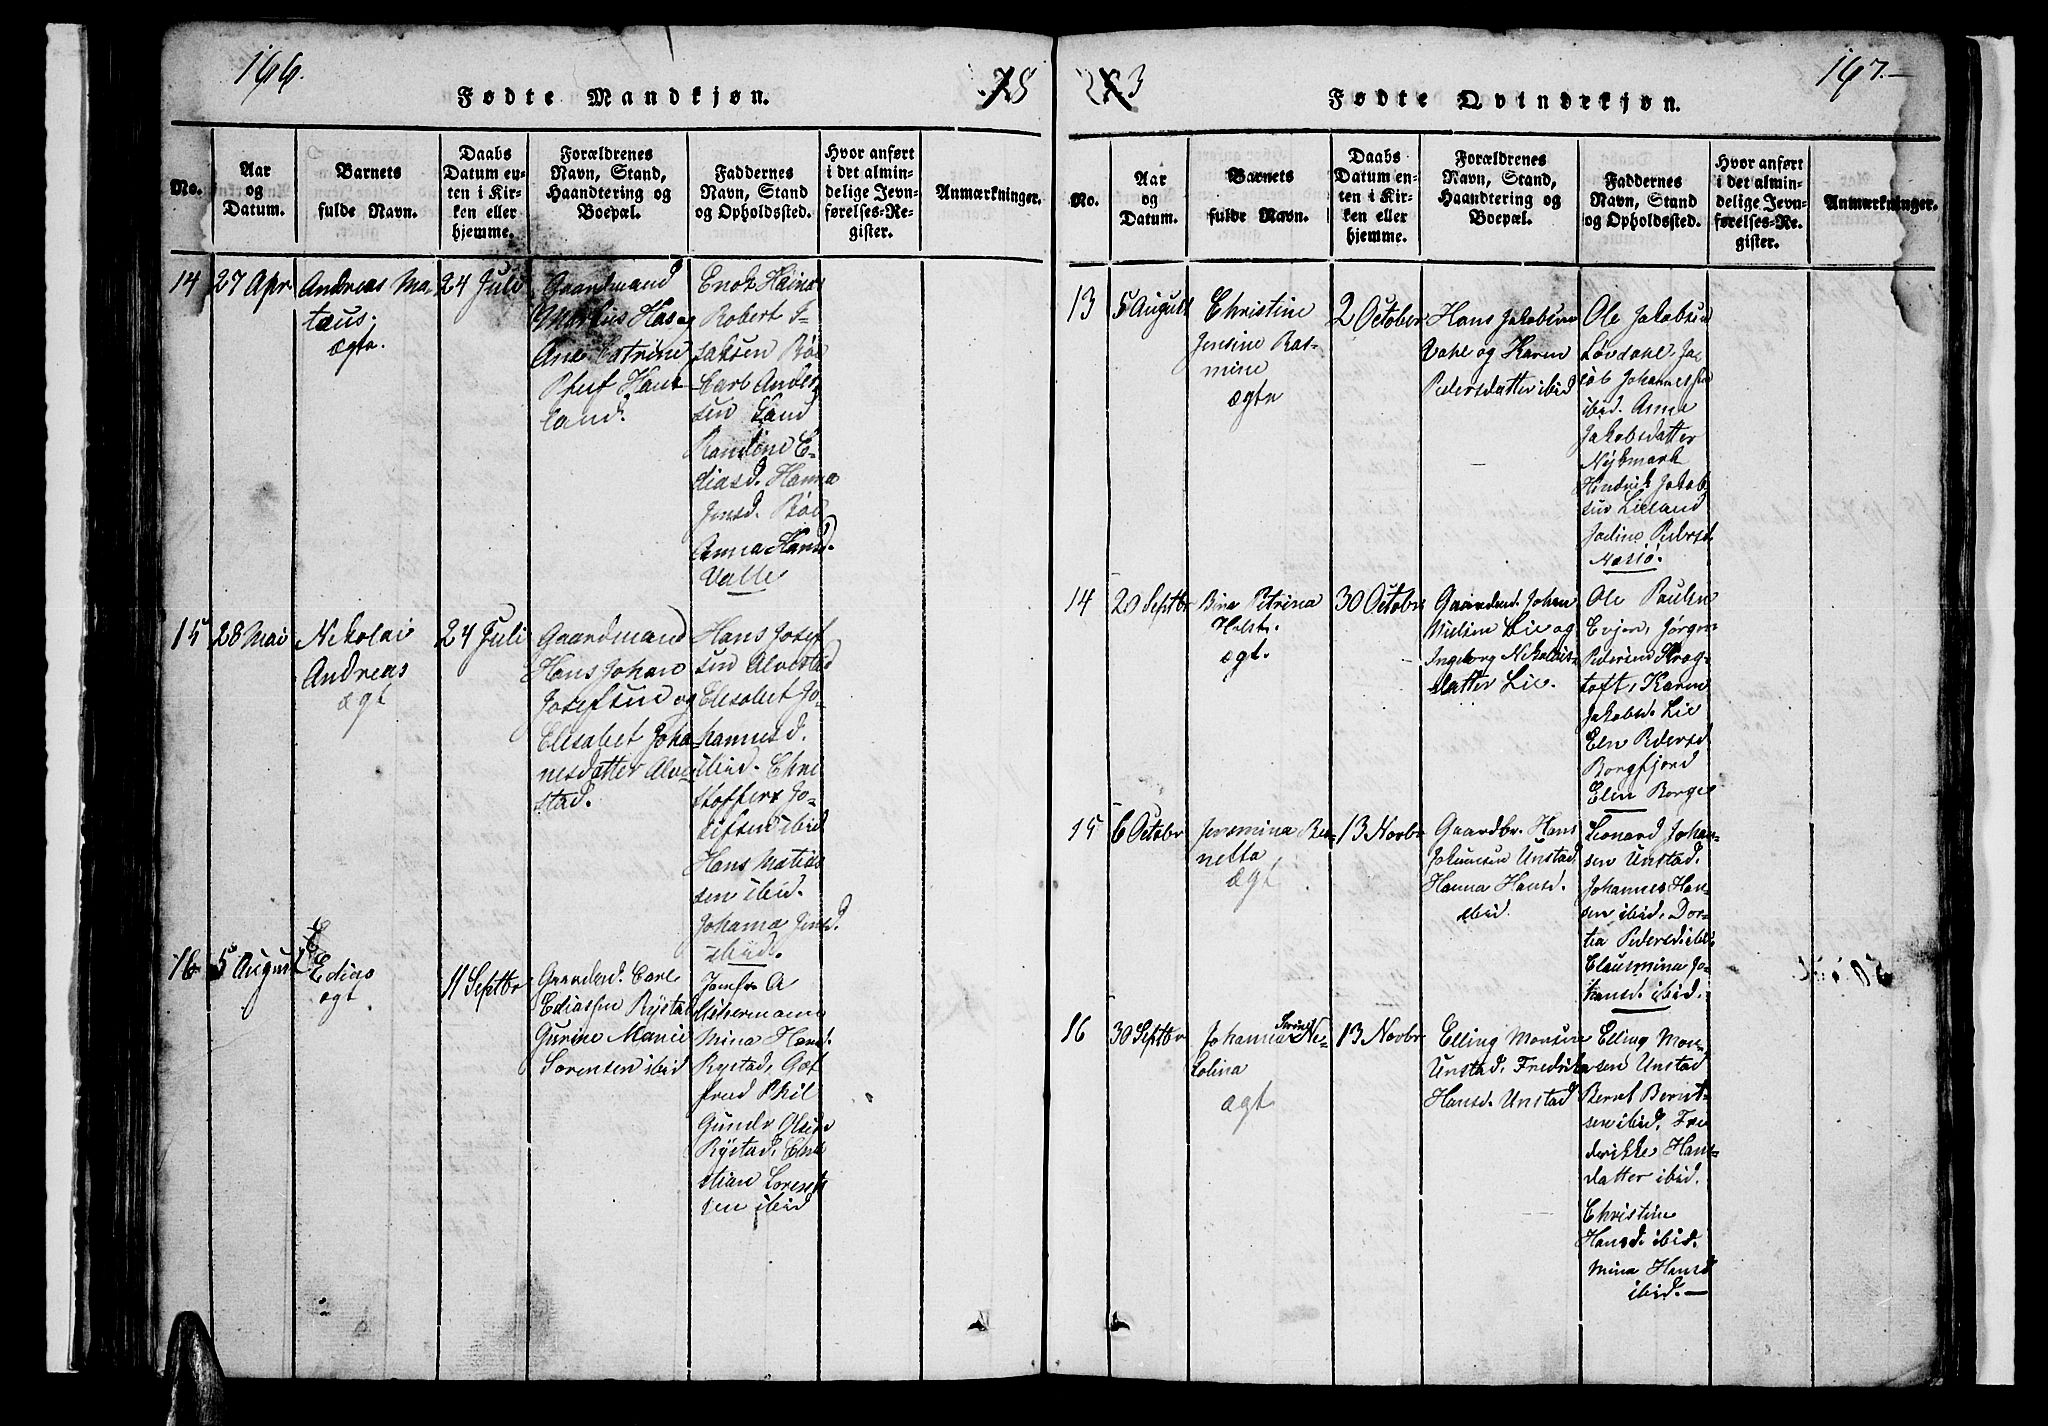 166.
Fødte Mandkjøn.
No.
Aar
og
Datum.
Barnets
fulde Navn.
Daabs
Datum en-
ten i Kir-
ken eller
hjemme.
Forældrenes
Navn, Stand,
Haandtering og
Boepæl.
Faddernes
Navn, Stand
og Opholdssted.
Hvor anført
i det almin-
delige Jevn-
førelses-Re-
gister.
Anmærkninger.
14
27 Apr
Andreas Ma-
taus.
ægte.
24 Juli
Gaardmand
Markus Has og
Ane Catrine
Hau-
land.
Enok Hain
Robert I-
saksen Böe
Carl Ander-
sen Sand
Randine E-
diasd. Hanna
Jensd. Böe
Anna Hansd.
Valle
15
28 Mai
Nikolai
Andreas
ægt
24 Juli
Gaardmand
Hans Johan
Josefsen og
Elisabet Joha
nesdatter Alve-
stad.
Hans Josef
sen Alvestad
Elisabet Jo-
hannesd.
ibid. Chri
stoffer Jo-
sefsen ibid
Hans Matias
sen ibid.
Johanna Jensd.
ibid.
16
5 August
Edias
ægt
11 Septbr
Gaardmd. Carl
Ediassen Rystad
Gurine Marie
Sorensen ibid
Jomfr. A
Mina Hansd.
Rystad, Got
fred Phil
Gunder Olsen
Rystad, Chri
stian Sorens
sen ibid
167.
Fødte Qvindekjøn.
No.
Aar
og
Datum.
Barnets
fulde Navn.
Daabs
Datum en-
ten i Kir-
ken eller
hjemme.
Forældrenes
Navn, Stand,
Haandtering og
Boepæl.
Faddernes
Navn, Stand
og Opholdssted.
Hvor anført
i det almin-
delige Jevn-
førelses-Re-
gister.
Anmærkninger.
13
5 August
Christine
Jensine Ras-
mine
ægte
2 October
Hans Jakobsen
Vahl og Karen
Pedersdatter ibid
Ole Jakobsen
Lövdahl, Ja
kob Johannessen
ibid. Anna
Jakobsdatter
Nykmark
Hendrik Jakob
sen Lieland
Jodine Pedersd.
14
20 Septbr
Bina Petrina
Holst.
ægt.
30 Octobr
Gaardmd. Johan
Nielsen Lie og
Ingeborg Nikolais-
datter Lie.
Ole Paulsen
Evjen, Jörgen
Pedersen Krog-
toft, Karen
Jakobsd. Lie
Elen Pedersd.
Borgfjord
Elen Borge
15
6 Octobr
Jeremina Be-
netta
ægt
13 Novbr
Gaardbr. Hans
Johansen Unstad
Hanna Hansd.
ibid.
Leonard Johan-
sen Unstad.
Johannes Han-
sen ibid. Dor-
tea Pedersd ibid.
Clausmina Jo-
hansd. ibid.
16
30 Septbr
Johanna
Solina
ægt
13 Novbr
Elling Monsen
Unstad, Fredrika
Hansd. Unstad
Elling Mon-
sen Unstad
Bernt Bernt-
sen ibid, Fre
derikke Hans-
datter ibid.
Christine
Hansd. ibid.
Mina Hansd
ibid.